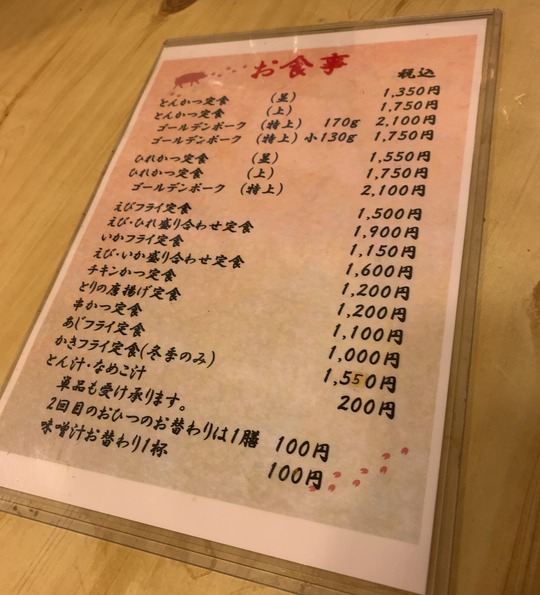 お食事
税込
とんかつ定食 (並) 1,350円
とんかつ定食 (上) 1,750円
ゴールデンポーク (特上) 170g 2,100円
ゴールデンポーク (特上) 小130g 1,750円
ひれかつ定食 (並) 1,550円
ひれかつ定食 (上) 1,750円
ゴールデンポーク (特上) 2,100円
えびフライ定食 1,500円
えび・ひれ盛り合わせ定食 1,900円
いかフライ定食 1,150円
えび・いか盛り合わせ定食 1,600円
チキンかつ定食 1,200円
とりの唐揚げ定食 1,200円
串かつ定食 1,100円
あじフライ定食 1,000円
かきフライ定食(冬季のみ) 1,550円
とん汁・なめこ汁 200円
単品も受け承ります。
2回目のおひつのお替わりは1膳 100円
味噌汁お替わり1杯 100円